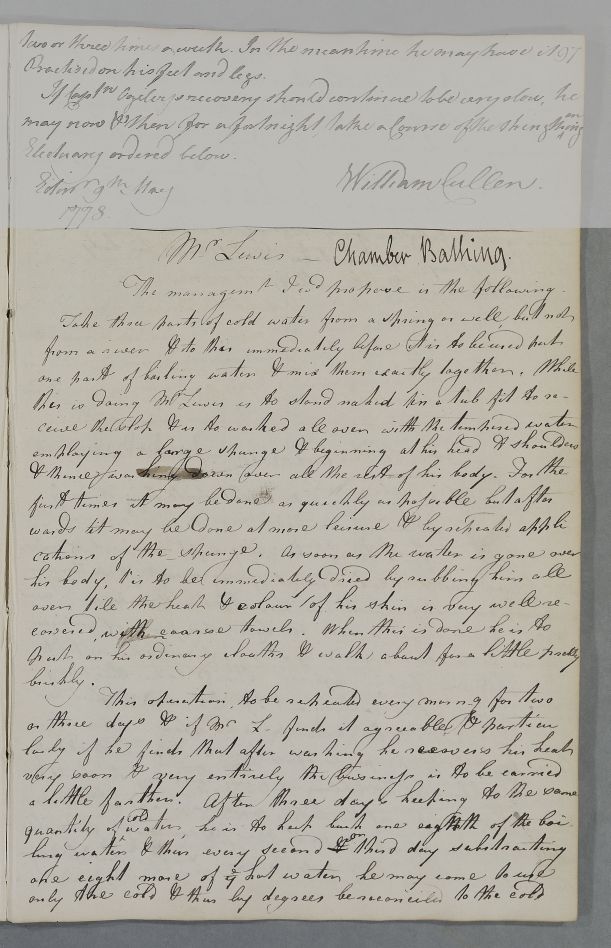 two or three times a week. In the meantime he may have it 97
Practised on his feet and legs.
If Captn Ogilvy's recovery should continue to be very slow, he
may now & then for a fortnight, take a Course of the strengthning
Electuary ordered below.
William Cullen.
Edinr 9th May
1778.
Mr Lewis – Chamber Bathing.
The managemt I wd propose is the following.
Take three parts of cold water from a spring or well, but not
from a river & to this immediately before it is to be used put
one part of boiling water & mix them exactly together. While
this is doing Mr Lewis is to stand naked in a tub fit to re-
ceive the slop & is to washed all over with the tempered water
employing a large spunge & beginning at his head & shoulders
& thence washing down over all the rest of his body. For the
first times it may be done as quickly as possible but after
wards it may be done at more leisure & by repeated appli
cations of the spunge. As soon as the water is gone over
his body, t'is to be immediately dried by rubbing him all
over 'tile the heat & colour of his skin is very well re-
covered, with coarse towels. When this is done he is to
put on his ordinary cloaths & walk about for a little pretty
briskly.
This operation, to be repeated every morng for two
or three days & if Mr L. finds it agreeable & particu
larly if he finds that after washing he recovers his heat
very soon & very entirely the business is to be carried
a little farther. After three days keeping to the same
quantity of cold water, he is to keep back one eighth of the boi
ling water & thus every second or third day substracting
one eight more of ye hot water, he may come to use
only the cold & thus by degrees be reconciled to the cold